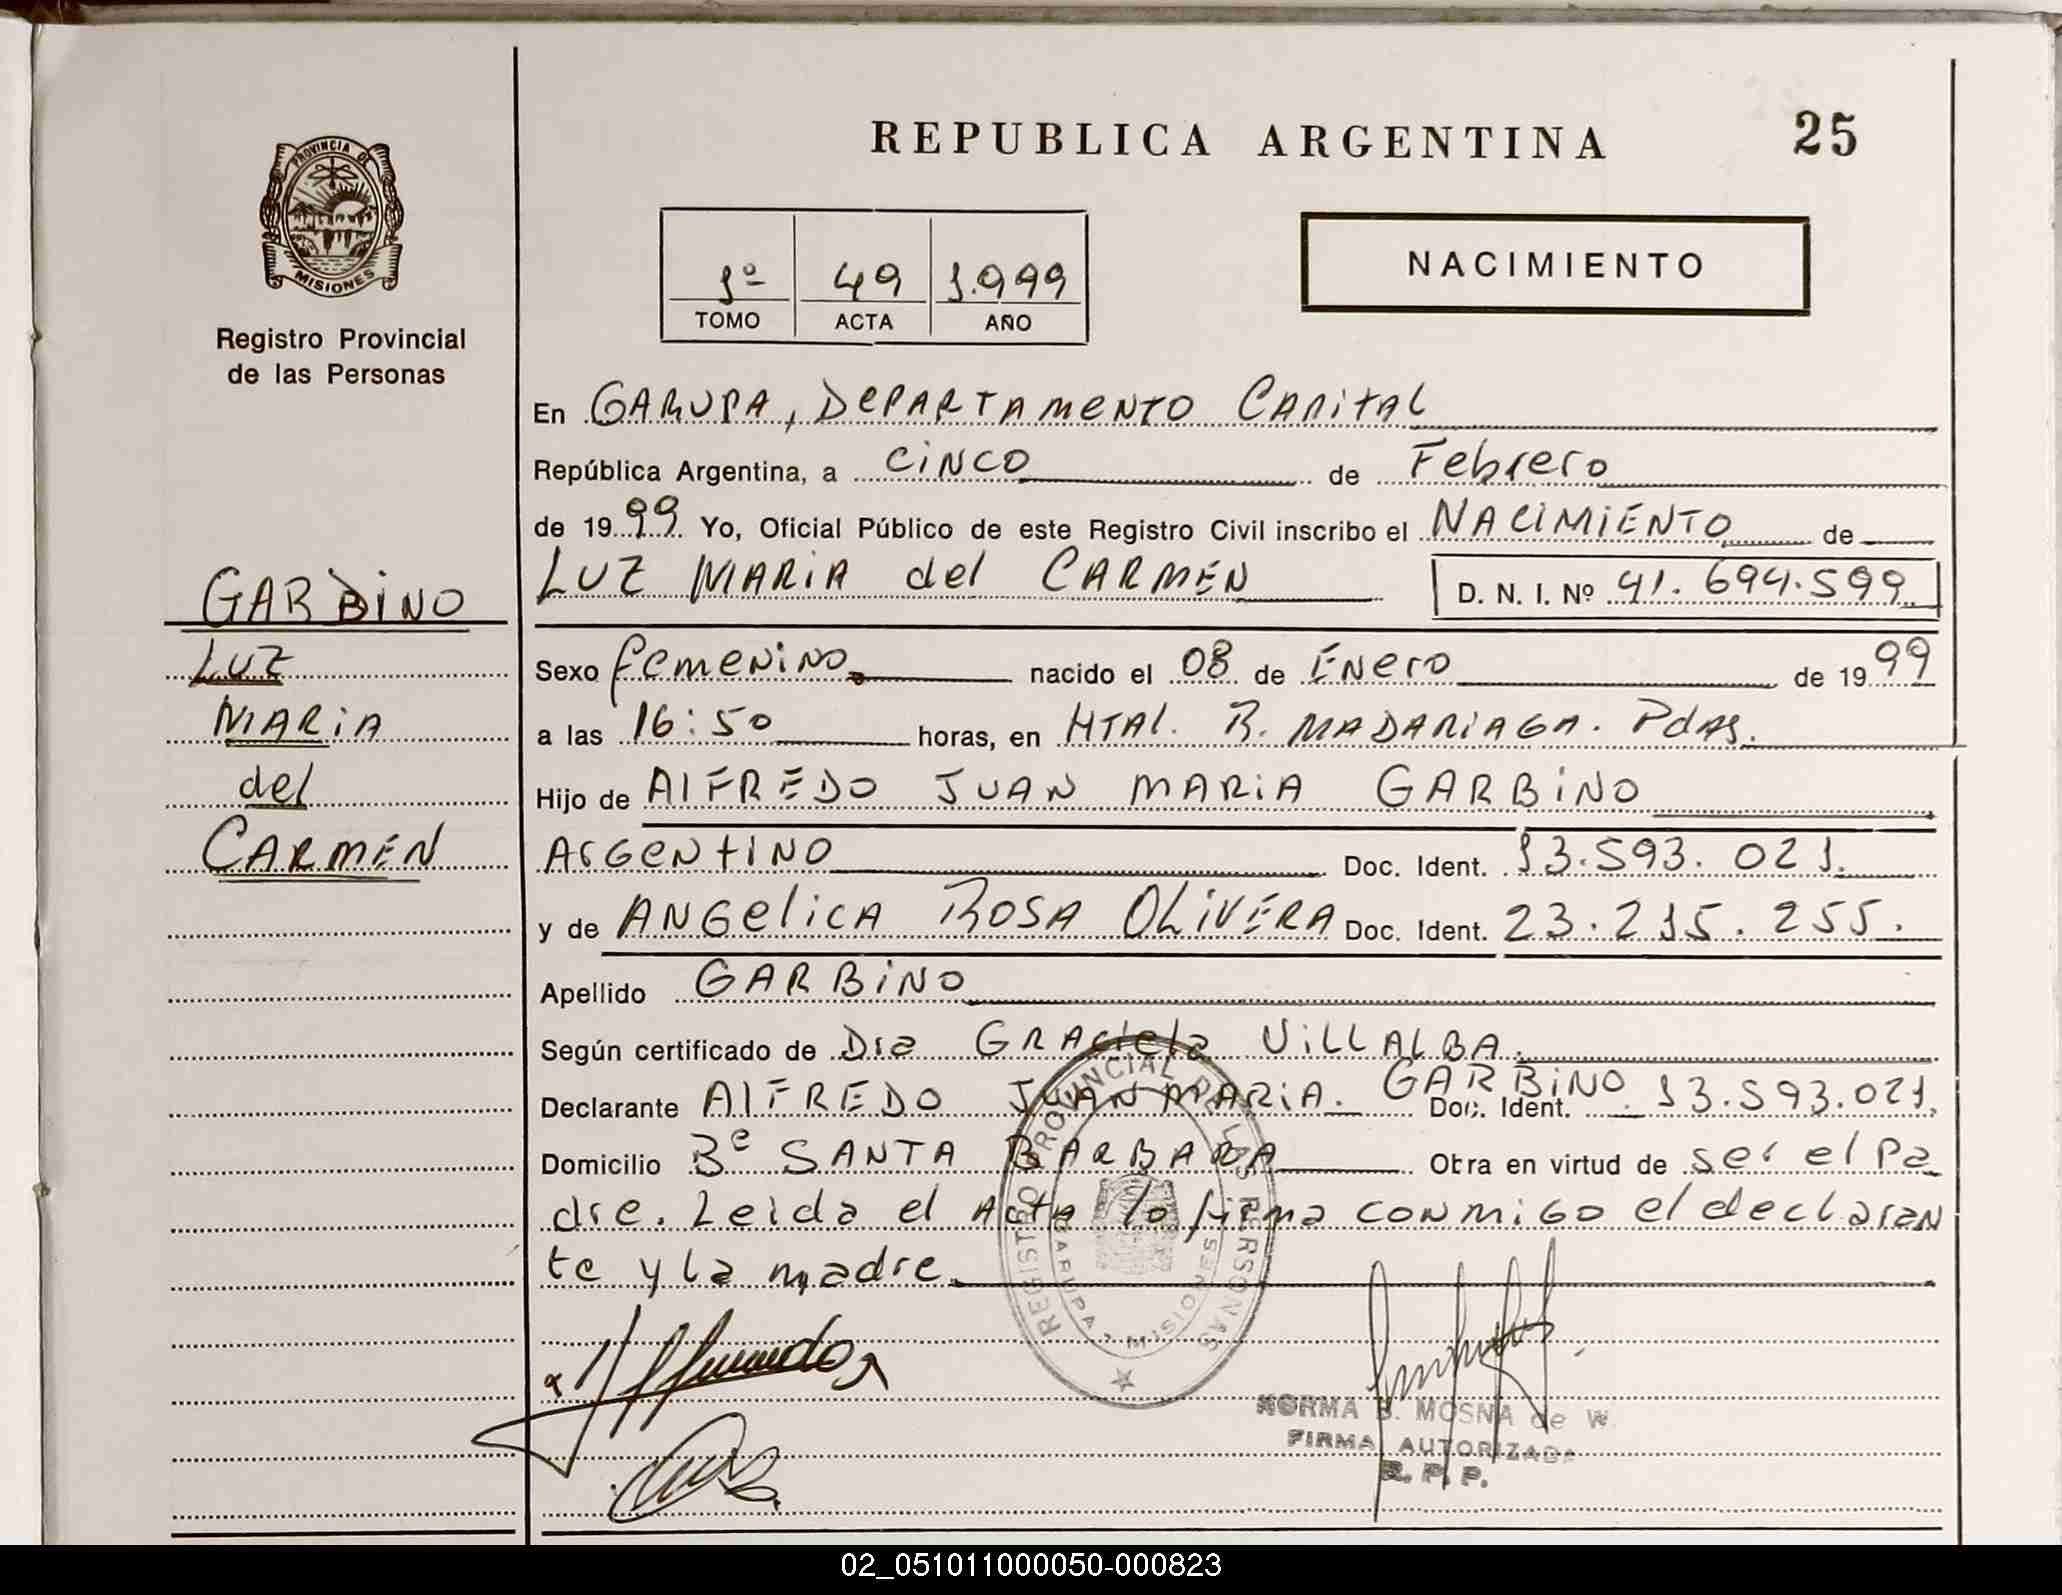 REPUBLICA ARGENTINA
25
PROVINCIA DE
MISIONES
Registro Provincial
de las Personas
1º 49 1.999
TOMO ACTA AÑO
NACIMIENTO
En GARUPA, DEPARTAMENTO CAPITAL
República Argentina, a CINCO de Febrero
de 1999 Yo, Oficial Público de este Registro Civil inscribo el NACIMIENTO de
LUZ MARIA del CARMEN D. N. I. Nº 41.694.599
GARBINO
LUZ
MARIA
del
CARMEN
Sexo femenino nacido el 08 de ENERO de 1999
a las 16:50 horas, en HTAL. R. MADARIAGA. Pdas.
Hijo de AlFREDO JUAN MARIA GARBINO
ARGENTINO Doc. Ident. 13.593.021.
y de ANGELICA ROSA OLIVERA Doc. Ident. 23.215.255.
Apellido GARBINO
Según certificado de Dra GRACIELA VILLALBA.
Declarante AlFREDO JUAN MARIA. GARBINO Doc. Ident. 13.593.021.
Domicilio Bº SANTA BARBARA Obra en virtud de ser el Pa
dre. Leida el Acta la firma conmigo el declaran
te y la madre.
REGISTRO PROVINCIAL DE LAS PERSONAS
GARUPA - MISIONES
NORMA B. MOSNA de W.
FIRMA AUTORIZADA
R. P. P.
02_051011000050-000823